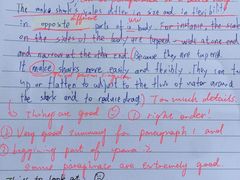 The mako shark's scales differ in size and flexibility
different
in opposite parts of a body. For instance, the scale
on the sides of the body are tapered - wide at one end
and narrow at the other end. Because they are tapered
It make sharks more easily and flexibly. They can tu
up or flatten to adjust to the flow of water around
the shark and to reduce drag.) Too much details.
Things are good ☺ ① right order!
② Very good summary for paragraph 1 and
beginning part of para. 2.
Some paraphrase are extremely good.